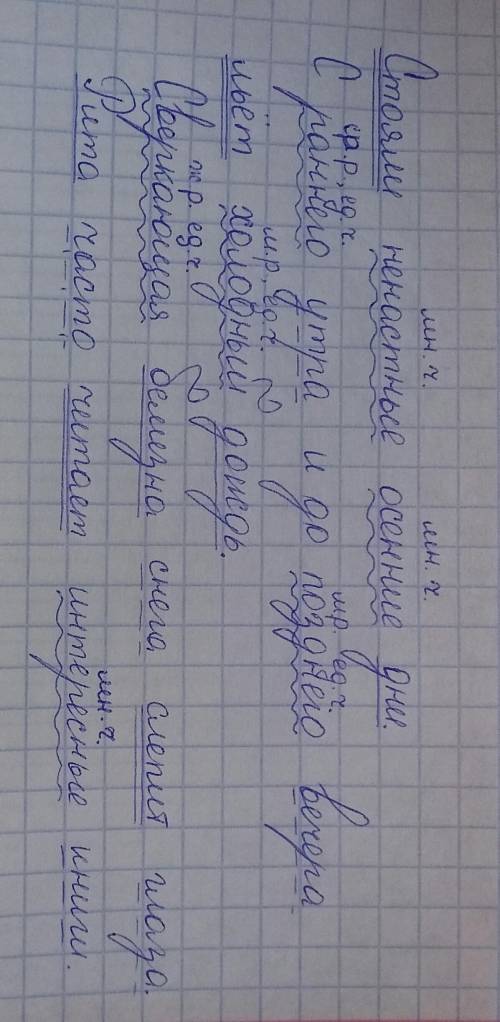 мн. ч. мн. ч.
Стояли ненастные осенние дни.
ср. р., ед. ч. м.р. ед. ч.
С раннего утра и до позднего вечера
м.р., ед. ч.
льёт холодный дождь.
ж.р. ед. ч.
Сверкающая белизна снега слепит глаза.
мн. ч.
Рита часто читает интересные книги.